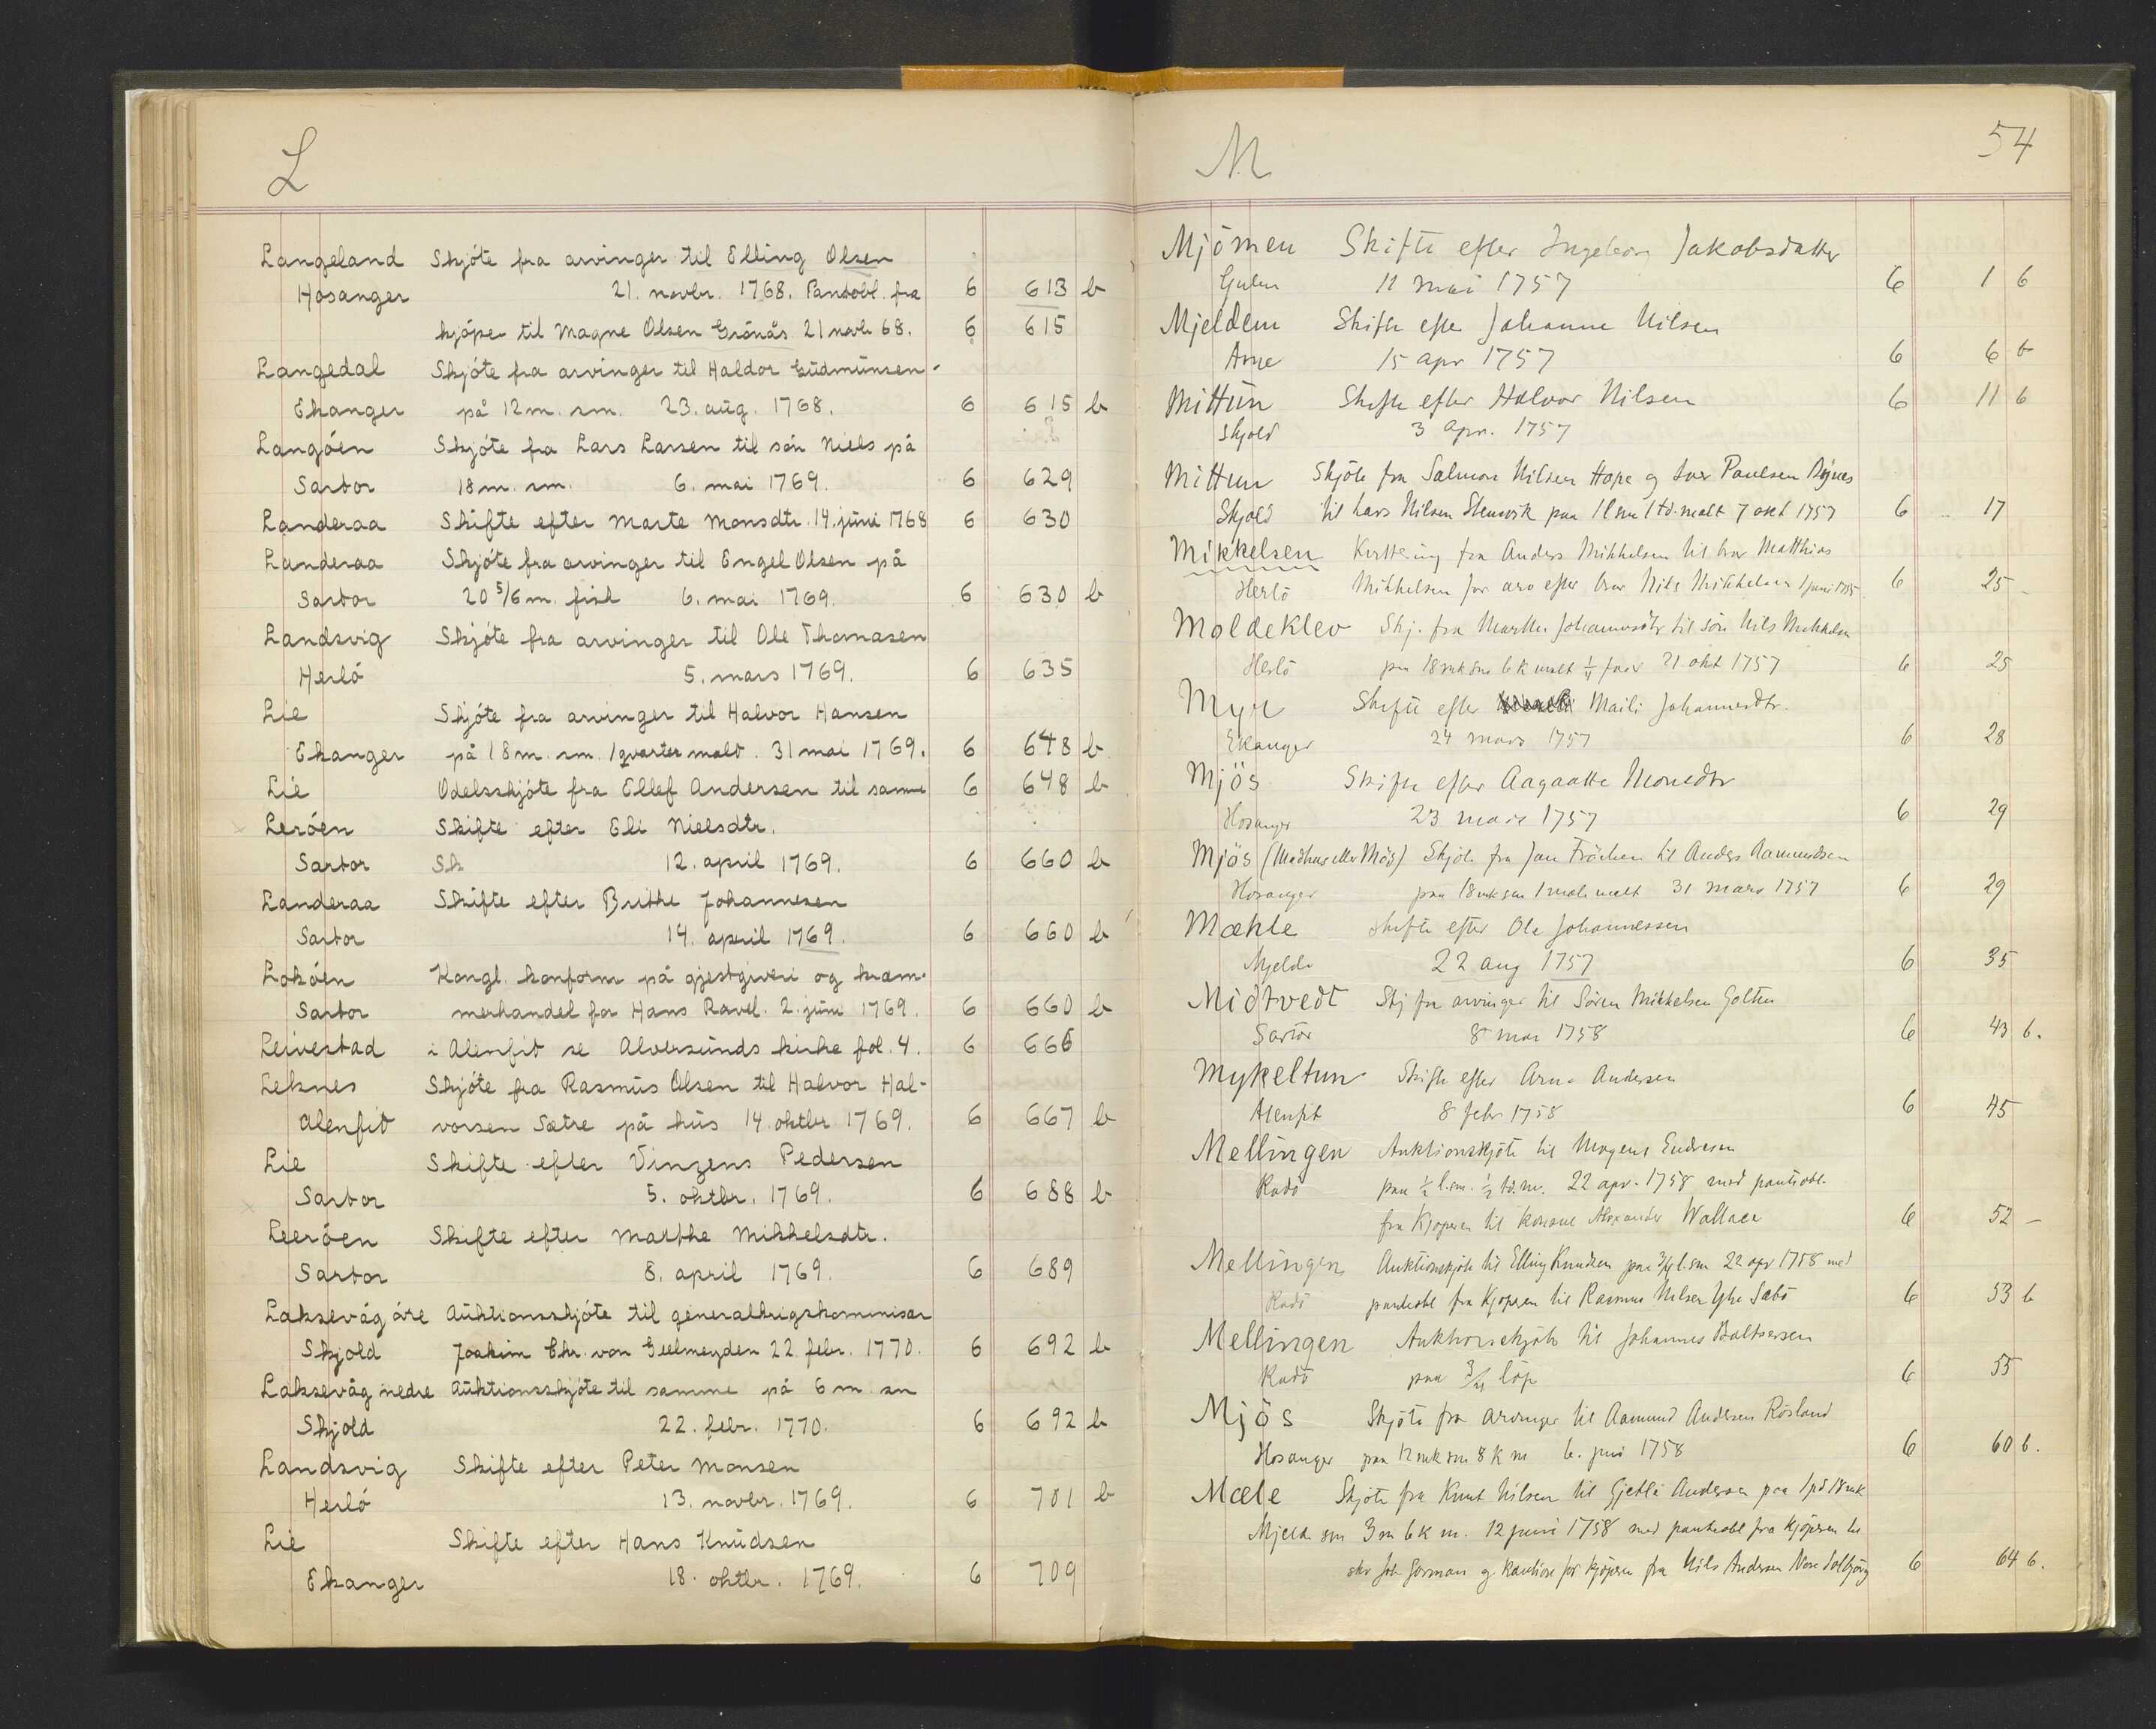 L
Langeland Skjóte fra arvinger til Elling Olsen
Hosanger 21. novbr. 1768. Pandobl. fra 6 613 b
kjóper til Magne Olsen Grónås 21 novb 68. 6 615
Langedal Skjóte fra arvinger til Haldor Gudmunsen
Ekanger på 12 m. sm. 23. aug. 1768. 6 615 b
Langóen Skjóte fra Lars Larsen til són Niels på
Sartor 18 m. sm. 6. mai 1769. 6 629
Landeraa Skifte efter Marte Monsdtr. 14. juni 1768 6 630
Landeraa Skjóte fra arvinger til Engel Olsen på
Sartor 20 5/6 m. fisk 6. mai 1769. 6 630 b
Landsvig Skjóte fra arvinger til Ole Thomasen
Herló 5. mars 1769. 6 635
Lie Skjóte fra arvinger til Halvor Hansen
Ekanger på 18 m. sm. 1 qvarter malt. 31 mai 1769. 6 648 b
Lie Odelsskjóte fra Ellef Andersen til samme 6 648 b
Leróen Skifte efter Eli Nielsdtr.
Sartor Sk 12. april 1769. 6 660 b
Landeraa Skifte efter Brithe Johannesen
Sartor 14. april 1769. 6 660 b
Lokóen Kongl. konform på gjestgiveri og kram-
Sartor merhandel for Hans Ravel. 2. juni 1769. 6 660 b
Leivestad i Alenfit se Alversunds kirke fol. 4. 6 666
Leknes Skjóte fra Rasmus Olsen til Halvor Hal-
Alenfit vorsen Sætre på hus 14. oktbr 1769. 6 667 b
Lie Skifte efter Vinzens Pedersen
Sartor 5. oktbr. 1769. 6 688 b
Leeróen Skifte efter Marthe Mikkelsdtr.
Sartor 8. april 1769. 6 689
Laksevåg óvre Auktionsskjóte til generalkrigskommisar
Skjold Joakim Chr. von Geelmeyden 22. febr. 1770. 6 692 b
Laksevåg nedre Auktionsskjóte til samme på 6 m. sm
Skjold 22. febr. 1770. 6 692 b
Landsvig Skifte efter Peter Monsen
Herló 13. novbr. 1769. 6 701 b
Lie Skifte efter Hans Knudsen
Ekanger 18. oktbr. 1769. 6 709
M 54
Mjömen Skifte efter Ingeborg Jakobsdatter
Gulen 11 mai 1757 6 1 b
Mjeldem Skifte efter Johanne Nilsen
Arne 15 apr 1757 6 6 b
Mittun Skifte efter Halvor Nilsen 6 11 b
Skjold 3 apr. 1757
Mittun Skjöte fra Salmon Nilsen Hope og Iver Paulsen
Skjold til Lars Nilsen Stensvik paa 1 l sm 1 td. malt 7 okt 1757 6 17
Mikkelsen Kvittering fra Anders Mikkelsen til bror Matthias
Herlö Mikkelsen for arv efter bror Nils Mikkelsen 1 juni 6 25
Moldeklev Skj. fra Marthe Johannesdtr til sön Nils Mikkelsen
Herlö paa 18 mk sm 6 k malt 1/4 21 okt 1757 6 25
Myr Skifte efter Maili Johannesdtr.
Ekanger 24 mars 1757 6 28
Mjös Skifte efter Aagaatte Monsdtr
Hosanger 23 mars 1757 6 29
Mjös (Madhus eller Mös) Skjöte fra Jan Fröchen til Anders Aamundsen
Hosanger paa 18 mk sm 1 mele malt 31 mars 1757 6 29
Mæhle Skifte efter Ole Johannessen
Mjelde 22 aug 1757 6 35
Midtvedt Skj fra arvinger til Sören Mikkelsen Golten
Sartor 8 mai 1758 6 43 b.
Mykeltun Skifte efter Arne Andersen
Alenfit 8 febr 1758 6 45
Mellingen Auktionsskjöte til Mogens Endresen
Radö paa 1/2 l. sm. 1/2 td. m. 22 apr. 1758 med panteobl.
fra Kjöperen til konsul Alexander Wallace 6 52 –
Mellingen Auktionsskjöte til Elling Knudsen paa 3/4 l. sm 22 apr 1758 med
Radö panteobl fra Kjöperen til Rasmus Nilsen Sæbö 6 53 b
Mellingen Auktionsskjöte til Johannes Baltsersen
Radö paa 3/4 löp 6 55
Mjös Skjöte fra arvinger til Aamund Andersen Rösland
Hosanger paa 12 mk sm 8 k m 6. juni 1758 6 60 b.
Mæle Skjöte fra Knut Nilsen til Gjertli Andersen paa 1 pd 18 mk
Mjelde sm 3 m 6 k m. 12 juni 1758 med panteobl fra kjöperen til
skr Joh Gorman og kaution for kjöperen fra Nils Andersen 6 64 b.